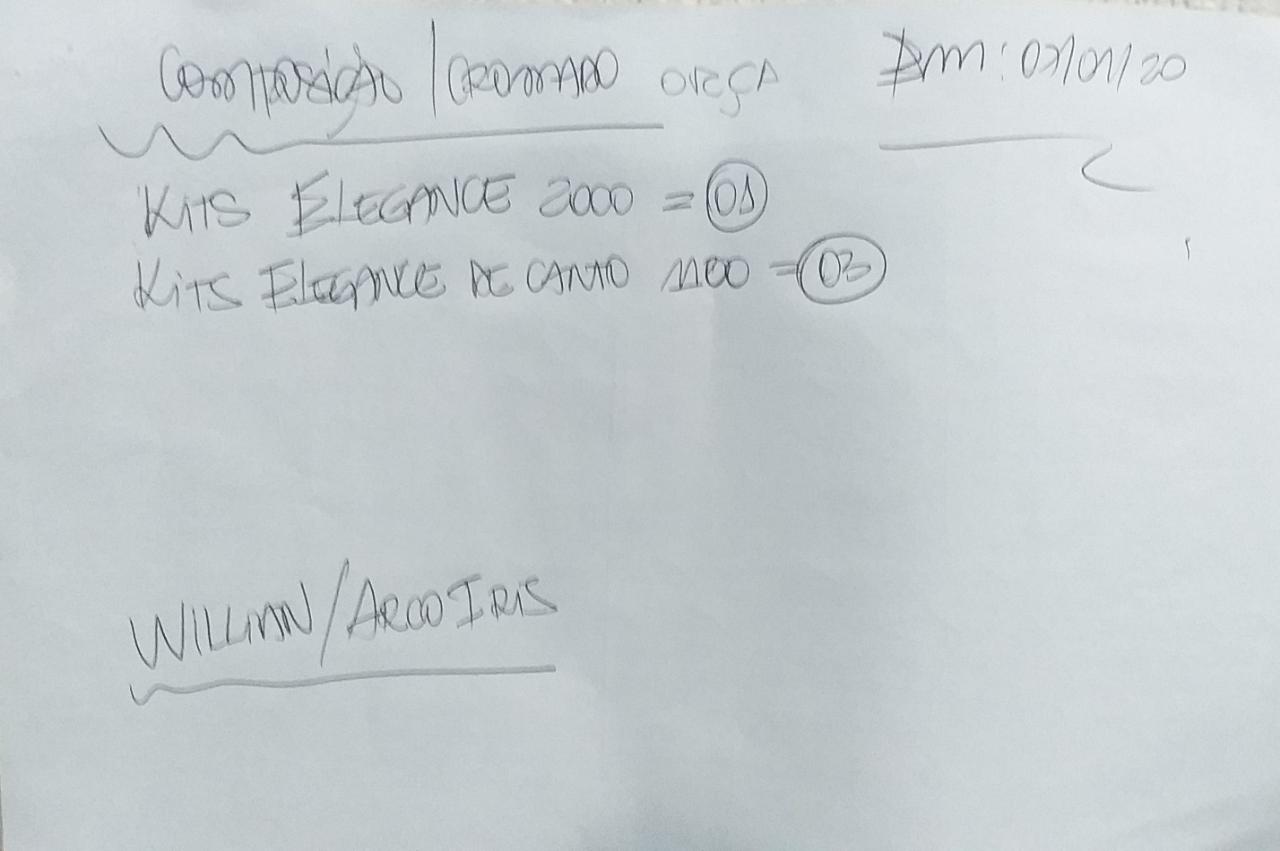 Composição / CROMADO ORÇA Em: 07/01/20
KITS ELEGANCE 2000 = 01
KITS ELEGANCE DE CANTO 1100 = 03
WILLIAN / ARCO IRIS